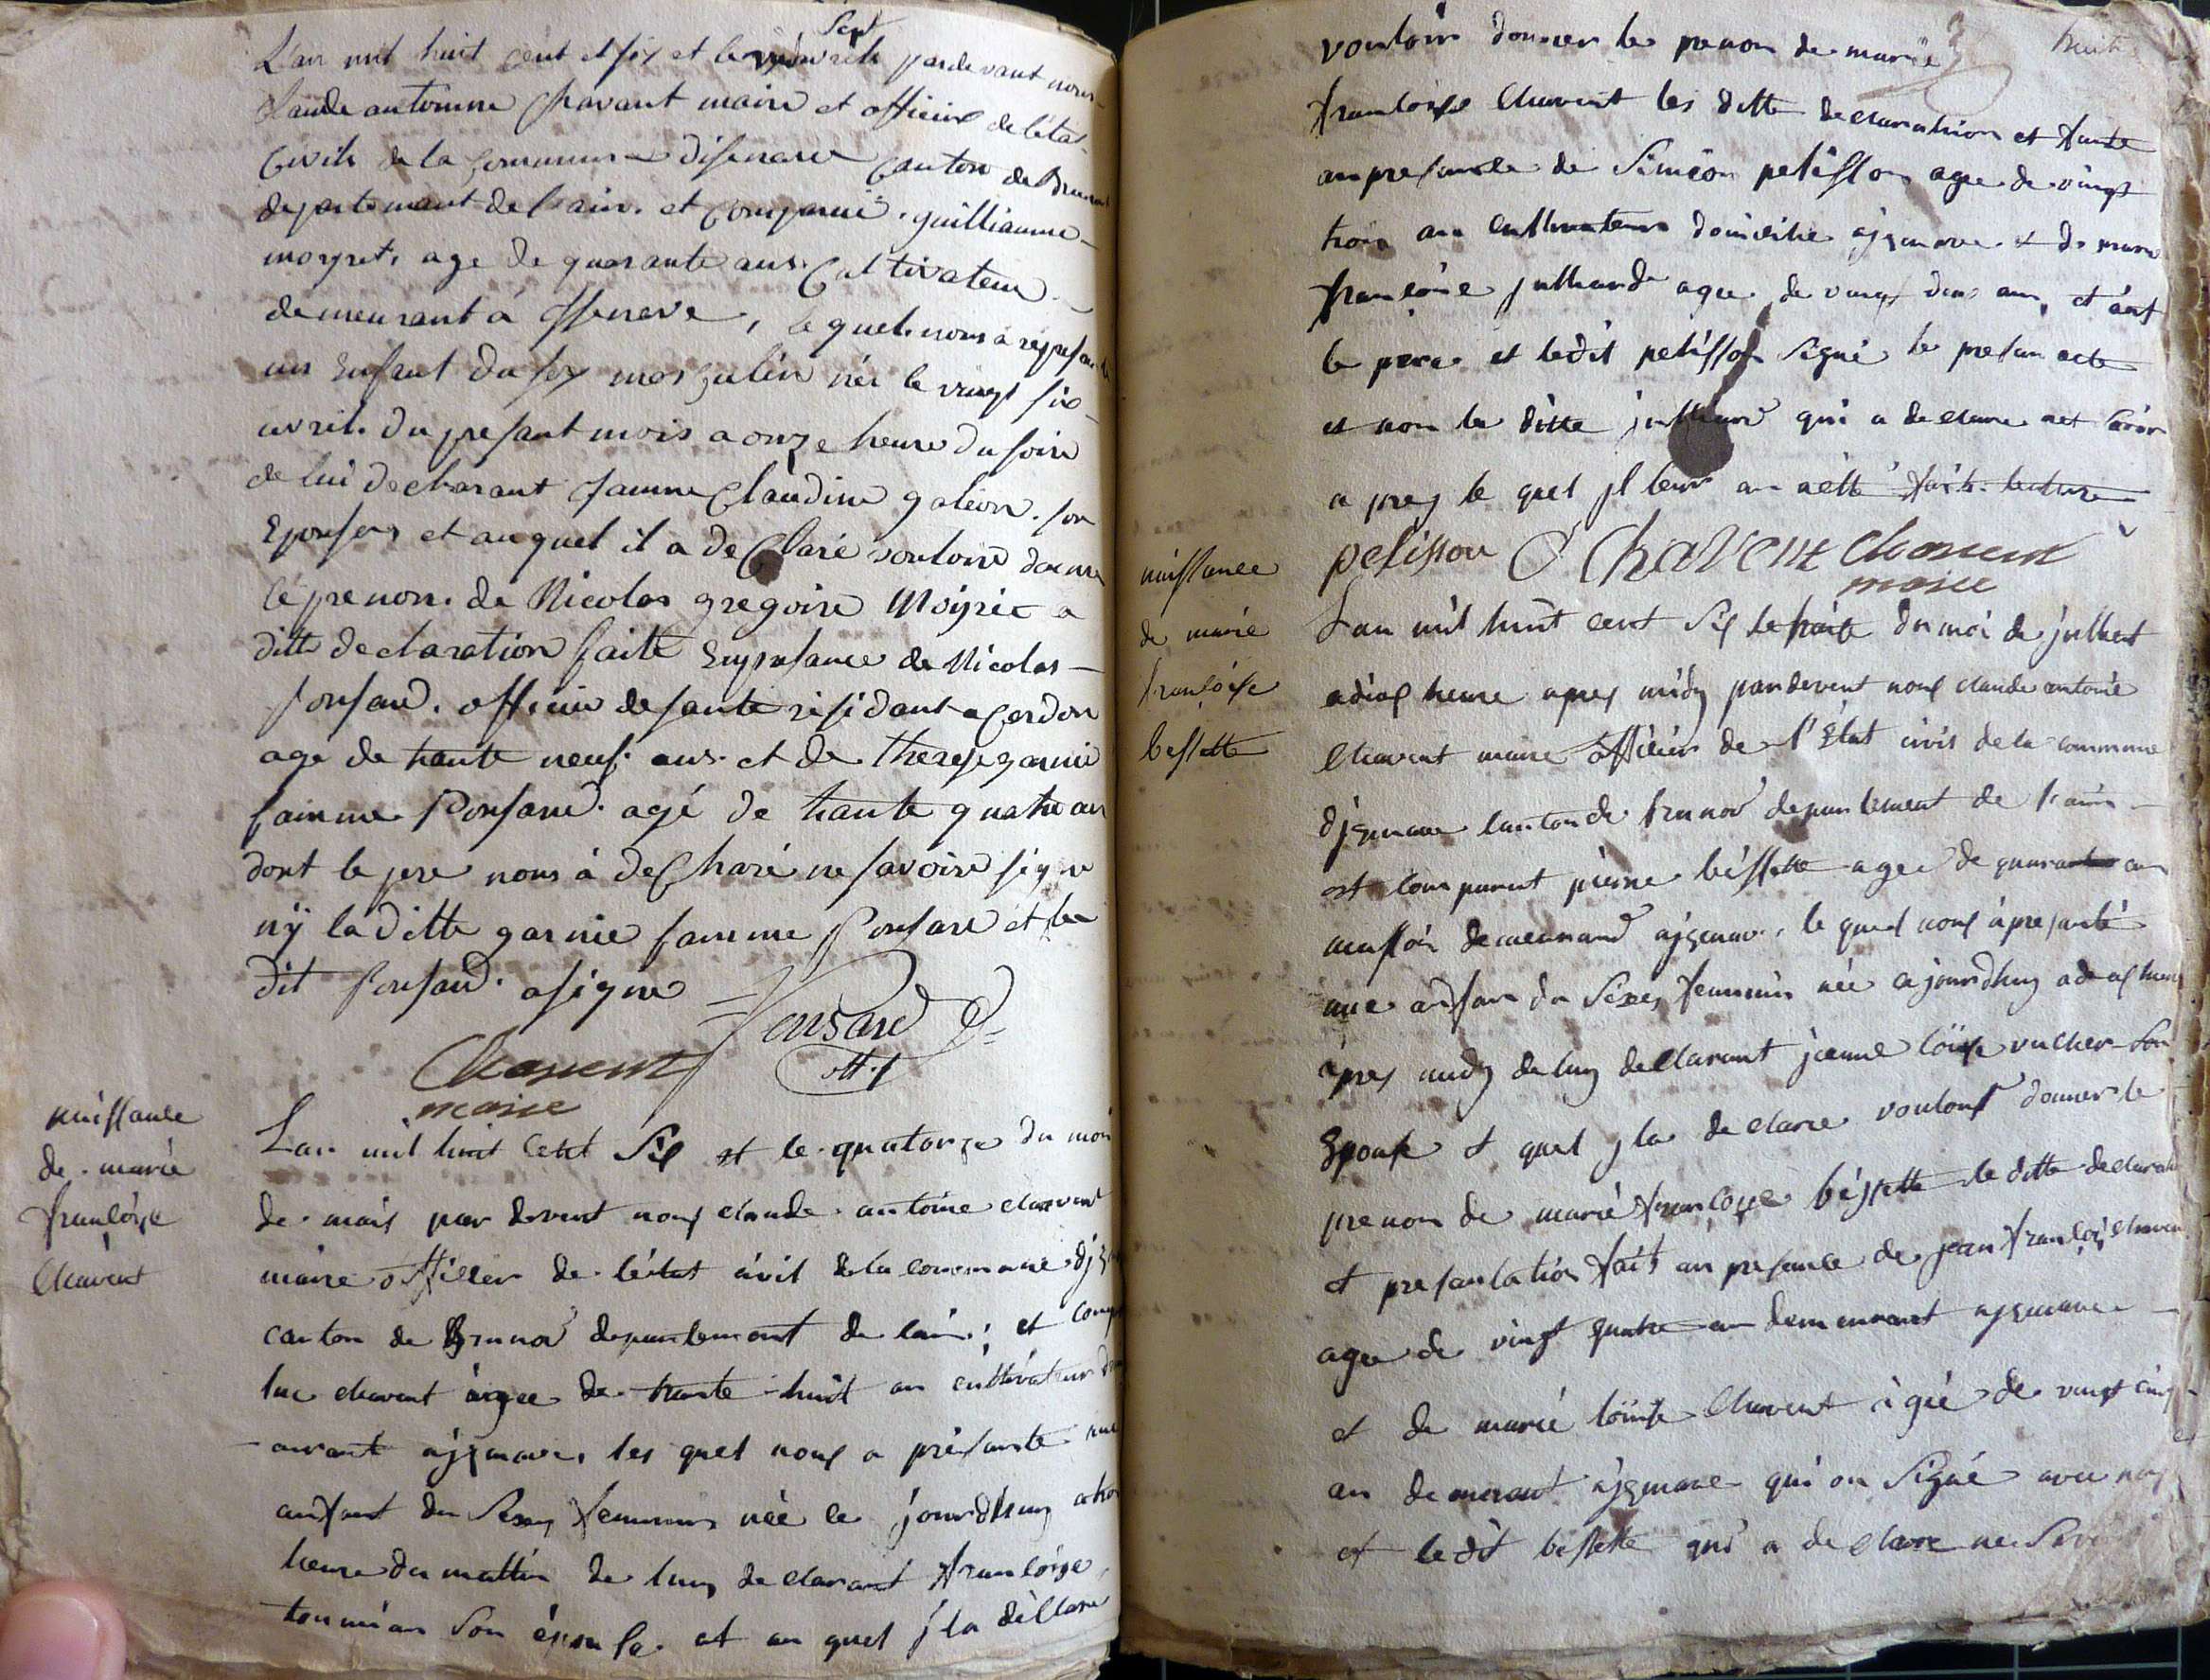 L'an mil huit cent et six et le vingt sept avril pardevant nous
Claude antoinne Chavant maire et officier de l'état
Civile de la Commune disenave Canton de Brenod
departemant de l'ain. et Comparuë. guilliaume
moyret. age de quarante ans. Cultivateur
demeurant à issenave, lequel. nous a represanté
un Enfant du sex masqulin néi le vingt six
avril. du presant mois a onze heure du soire
de lui decharant famme Claudine galéon. son
Epousse et auquel il a deClaré vouloire donne
le prenom. de Nicolas gregoire Moiret a
ditte declaration faitte En presance de Nicolas
ponsard. officier de santé residant a Cerdon
age de trante neuf ans. et de therese garnié
famme Ponsard. agé de trante quatre an
dont le pere nous à decharé ne savoire signe
ny la ditte garnie famme Ponsard et le
dit ponsard. a signe
Ponsard
off. s
Chavent
maire
naissance
de marie
françoise
Chavent
L'an mil huit cent six et le quatorze du moi
de mais par devent nous claude antoine chavent
maire officier de l'état civil de la commune
canton de Brunod departement de l'ain; et
luc chavent àgee de trante huit an cultivateur
aurant ajzenave, les quel nous a présante une
anfant du Sexes femminin née ce jourdhuy
heure du mattin de luy declarant françoise
tournian Son épouse et au quel jla déllare
vouloir donner le prenom de marie
huit
francoise Chavent les ditte declaration et faite
an presance de Siméon pelisson agee de vingt
trois an cultivateur domicilie ajzenave et de marie
francoise julliand agee de vingt deux an, et ànt
le pere et ledit pelisson Signé le presan acte
et non la ditte julliand qui a declare net Savoir
a prez le quel jl leur an aètté fait lecture
pelisson C Chavent Chavent
maire
naissance
de marie
françoise
bessette
L'an mil huit cent Six le huite du moi de julliet
adix heure apres midy pardevent nous claude antoine
Chavent maire officier de l'Etat civil de la commune
djzenave canton de brunod departement de l'ain
est comparent pierre bessette agee de quarante an
masson demeurand ajzenave, le quel nous àpresanté
une anfan du Sexes femmin née ajourdhuy a dix heure
apres midy de luy dellarant jeanne loïse vucher Son
Epouse et quel jla declare voulont donner le
prenom de marie francoise béssette le ditte declaration
et presantation fait an presance de jean françois chavent
agee de vingt quatre an demmurant ajzenave
et de marié loïuise Chavent àgié de vingt cinq
an demurant ajzenave qui on Signé avec nous
et ledit bessette qui a declare ne Savoir